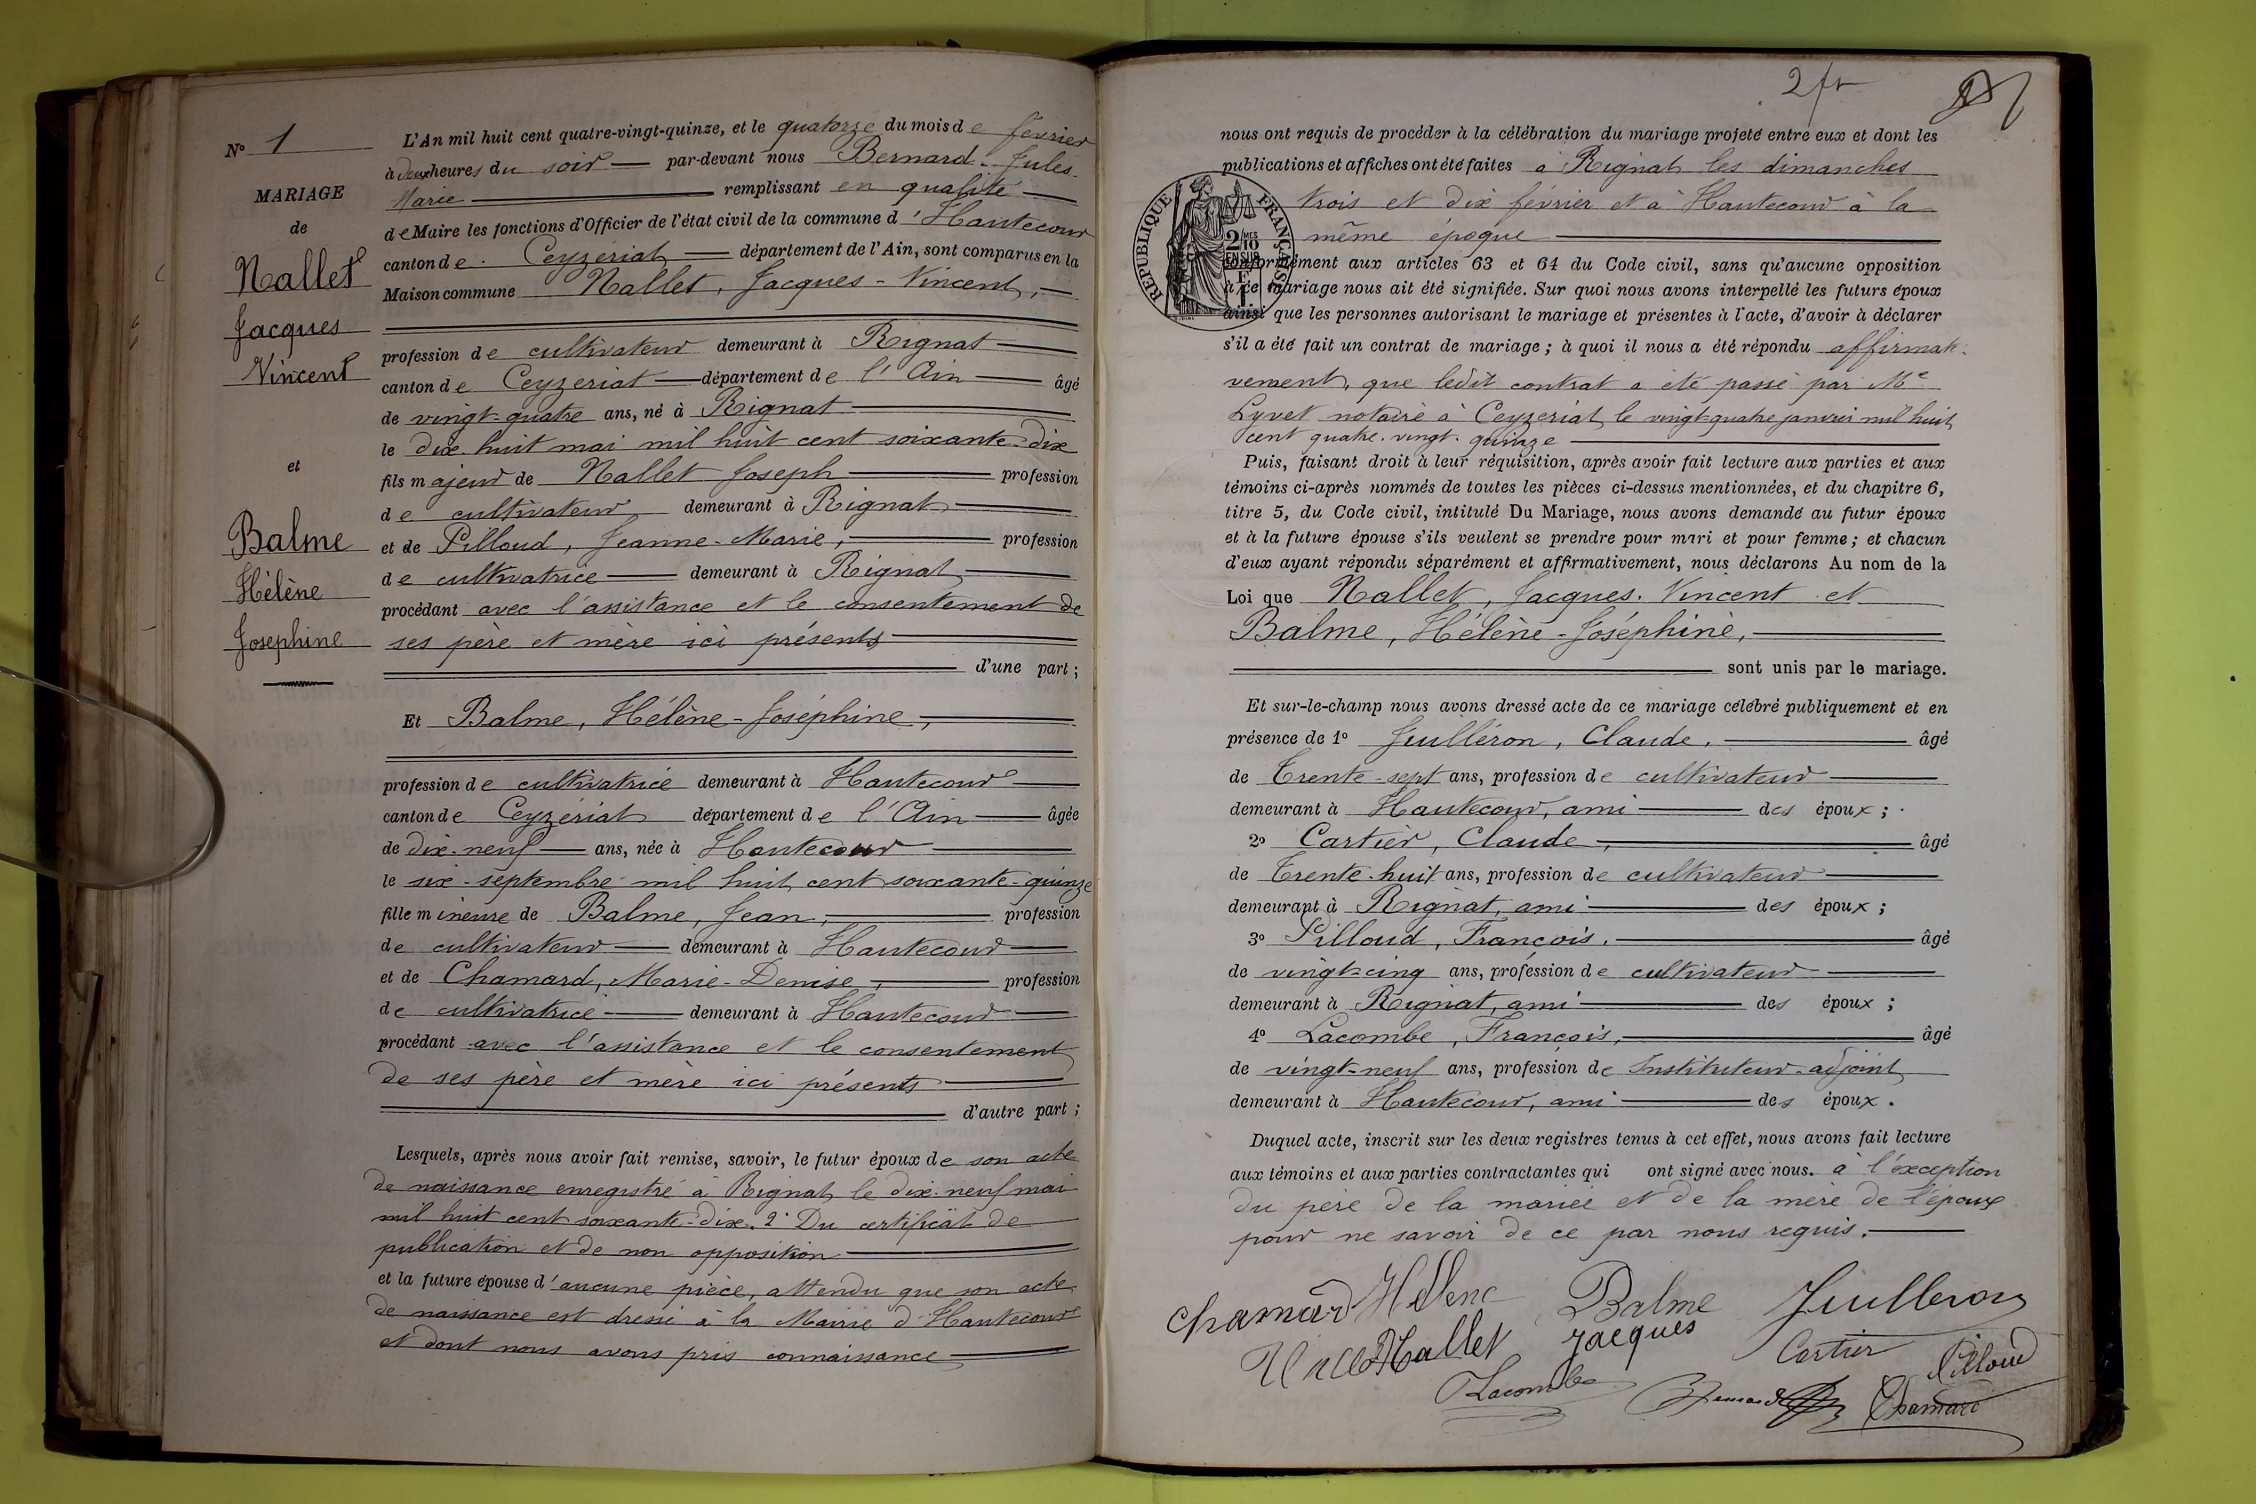 N° 1
MARIAGE
de
Nallet
Jacques
Vincent
et
Balme
Hélène
Joséphine
L'An mil huit cent quatre-vingt-quinze, et le quatorze du mois de février
à deux heures du soir par-devant nous Bernard Jules-
Marie remplissant en qualité
de Maire les fonctions d'Officier de l'état civil de la commune d'Hautecour
canton de Ceyzériat département de l'Ain, sont comparus en la
Maison commune Nallet, Jacques-Vincent,
profession de cultivateur demeurant à Rignat
canton de Ceyzeriat département de l'Ain âgé
de vingt-quatre ans, né à Rignat
le dix-huit mai mil huit cent soixante-dix
fils majeur de Nallet Joseph profession
de cultivateur demeurant à Rignat
et de Pilloud, Jeanne-Marie, profession
de cultivatrice demeurant à Rignat
procédant avec l'assistance et le consentement de
ses père et mère ici présents
d'une part ;
Et Balme, Hélène-Joséphine,
profession de cultivatrice demeurant à Hautecour
canton de Ceyzériat département de l'Ain âgée
de dix-neuf ans, née à Hautecour
le six septembre mil huit cent soixante-quinze
fille mineure de Balme, Jean, profession
de cultivateur demeurant à Hautecour
et de Chamard, Marie-Denise, profession
de cultivatrice demeurant à Hautecour
procédant avec l'assistance et le consentement
de ses père et mère ici présents
d'autre part ;
Lesquels, après nous avoir fait remise, savoir, le futur époux de son acte
de naissance enregistré à Rignat le dix-neuf mai
mil huit cent soixante-dix. 2° Du certificat de
publication et de non opposition
et la future épouse d'aucune pièce, attendu que son acte
de naissance est dressé à la Mairie d'Hautecour
et dont nous avons pris connaissance
2 ft
nous ont requis de procéder à la célébration du mariage projeté entre eux et dont les
publications et affiches ont été faites à Rignat les dimanches
trois et dix février et à Hautecour à la
même époque
RÉPUBLIQUE FRANÇAISE
2/10 MES EN SUS
conformément aux articles 63 et 64 du Code civil, sans qu'aucune opposition
à ce mariage nous ait été signifiée. Sur quoi nous avons interpellé les futurs époux
ainsi que les personnes autorisant le mariage et présentes à l'acte, d'avoir à déclarer
s'il a été fait un contrat de mariage ; à quoi il nous a été répondu affirmati-
vement, que ledit contrat a été passé par Me
Lyvet notaire à Ceyzeriat le vingt-quatre janvier mil huit
cent quatre-vingt-quinze
Puis, faisant droit à leur réquisition, après avoir fait lecture aux parties et aux
témoins ci-après nommés de toutes les pièces ci-dessus mentionnées, et du chapitre 6,
titre 5, du Code civil, intitulé Du Mariage, nous avons demandé au futur époux
et à la future épouse s'ils veulent se prendre pour mari et pour femme ; et chacun
d'eux ayant répondu séparément et affirmativement, nous déclarons Au nom de la
Loi que Nallet, Jacques-Vincent et
Balme, Hélène-Joséphine,
sont unis par le mariage.
Et sur-le-champ nous avons dressé acte de ce mariage célébré publiquement et en
présence de 1° Juilléron, Claude, âgé
de Trente-sept ans, profession de cultivateur
demeurant à Hautecour, ami des époux ;
2° Cartier, Claude, âgé
de Trente-huit ans, profession de cultivateur
demeurant à Rignat, ami des époux ;
3° Pilloud, François, âgé
de vingt-cinq ans, profession de cultivateur
demeurant à Rignat, ami des époux ;
4° Lacombe, François, âgé
de vingt-neuf ans, profession de Instituteur-adjoint
demeurant à Hautecour, ami des époux.
Duquel acte, inscrit sur les deux registres tenus à cet effet, nous avons fait lecture
aux témoins et aux parties contractantes qui ont signé avec nous. à l'exception
du père de la mariée et de la mère de l'époux
pour ne savoir de ce par nous requis.
Chamard Hélène Balme Juilleron
Nallet Jacques Cartier Pilloud
Lacombe Bernard Chamard